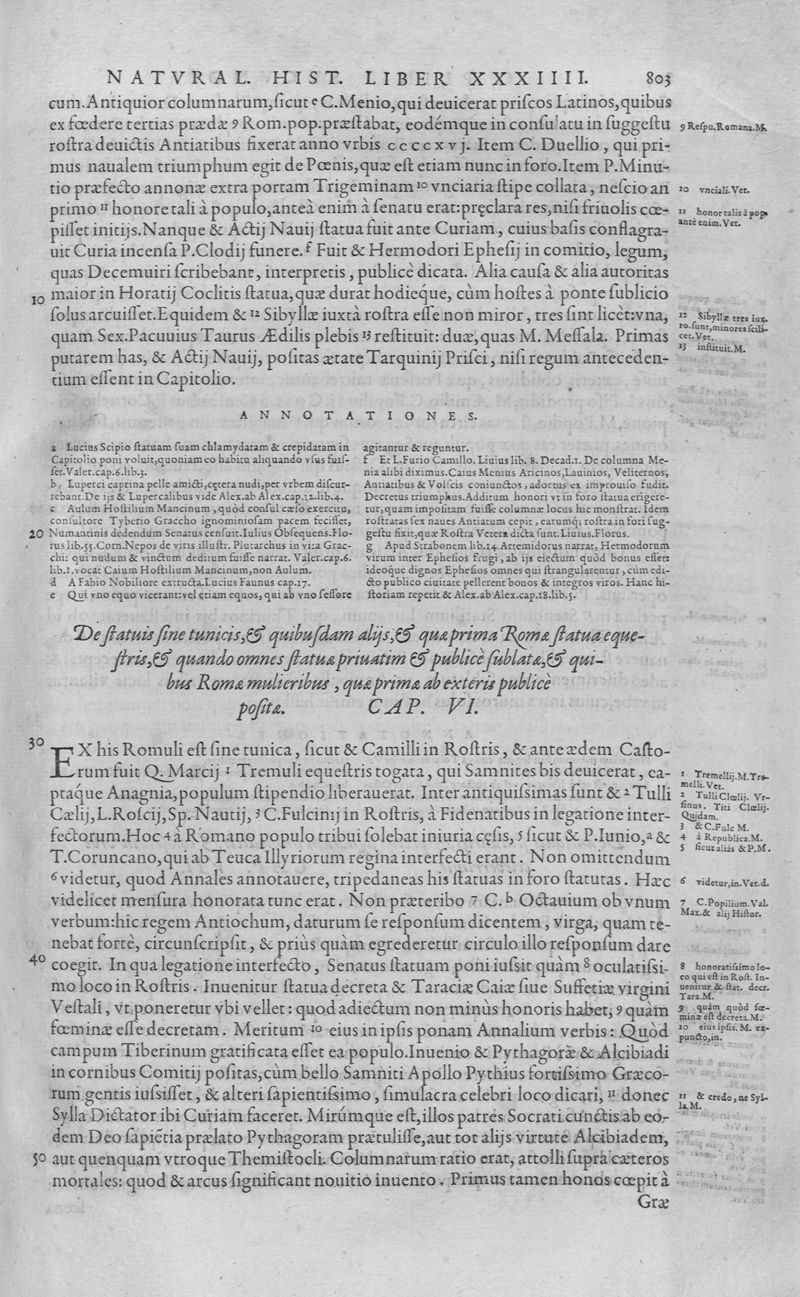 NATVRAL. HIST. LIBER XXXIIII. 803
cum. Antiquior columnarum, ſicut e C. Menio, qui deuicerat priſcos Latinos, quibus
ex fœdere tertias prædæ 9 Rom. pop. præſtabat, eodémque in conſulatu in ſuggeſtu
roſtra deuictis Antiatibus fixerat anno vrbis ccccxvj. Item C. Duellio, qui pri-
mus naualem triumphum egit de Pœnis, quæ eſt etiam nunc in foro. Item P. Minu-
tio præfecto annonæ extra portam Trigeminam 10 vnciaria ſtipe collata, neſcio an
primo 11 honore tali à populo, anteà enim à ſenatu erat: pręclara res, niſi friuolis cœ-
piſſet initijs. Nanque & Actij Nauij ſtatua fuit ante Curiam, cuius baſis conflagra-
uit Curia incenſa P. Clodij funere. f Fuit & Hermodori Epheſij in comitio, legum,
quas Decemuiri ſcribebant, interpretis, publicè dicata. Alia cauſa & alia autoritas
10 maior in Horatij Coclitis ſtatua, quæ durat hodieque, cùm hoſtes à ponte ſublicio
ſolus arcuiſſet. Equidem & 12 Sibyllæ iuxtà roſtra eſſe non miror, tres ſint licèt: vna,
quam Sex. Pacuuius Taurus Ædilis plebis 13 reſtituit: duæ, quas M. Meſſala. Primas
putarem has, & Actij Nauij, poſitas ætate Tarquinij Priſci, niſi regum anteceden-
tium eſſent in Capitolio.
9 Reſpu. Romana. M.
10 vnciali. Vet.
11 honor talis à popu
ante enim. Vet.
12 Sibyllæ tres iux.
ro. ſunt, minores ſcili-
cet. Vet.
13 inſtituit. M.
ANNOTATIONES.
a Lucius Scipio ſtatuam ſuam chlamydatam & crepidatam in
Capitolio poni voluit, quoniam eo habitu aliquando vſus fuiſ-
ſet. Valer. cap. 6. lib. 3.
b Luperci caprina pelle amicti, cętera nudi, per vrbem diſcur-
rebant. De ijs & Lupercalibus vide Alex. ab Alex. cap. 12. lib. 4.
c Aulum Hoſtilium Mancinum, quòd conſul cæſo exercitu,
conſultore Tyberio Graccho ignominioſam pacem feciſſet,
20 Numantinis dedendum Senatus cenſuit. Iulius Obſequens. Flo-
rus lib. 55. Corn. Nepos de viris illuſtr. Plutarchus in vita Grac-
chi: qui nudum & vinctum deditum fuiſſe narrat. Valer. cap. 6.
lib. 1. vocat Caium Hoſtilium Mancinum, non Aulum.
d A Fabio Nobiliore extructa. Lucius Faunus cap. 17.
e Qui vno equo vicerant: vel etiam equos, qui ab vno ſeſſore
agitantur & reguntur.
f Et L. Furio Camillo. Liuius lib. 8. Decad. 1. De columna Me-
nia alibi diximus. Caius Menius Aricinos, Lauinios, Veliternos,
Antiatibus & Volſcis coniunctos, adortus ex improuiſo fudit.
Decretus triumphus. Additum honori vt in foro ſtatua erigere-
tur, quam impoſitam fuiſſe columnæ locus hic monſtrat. Idem
roſtratas ſex naues Antiatum cepit, earumq́; roſtra in fori ſug-
geſtu fixit, quæ Roſtra Vetera dicta ſunt. Liuius. Florus.
g Apud Strabonem lib. 14. Artemidorus narrat, Hermodorum
virum inter Epheſios frugi, ab ijs eiectum quòd bonus eſſet:
ideoque dignos Epheſios omnes qui ſtrangularentur, cùm edi-
cto publico ciuitate pellerent bonos & integros viros. Hanc hi-
ſtoriam repetit & Alex. ab Alex. cap. 18. lib. 5.
De ſtatuis ſine tunicis, & quibuſdam alijs, & quæ prima Romæ ſtatua eque-
ſtris, & quando omnes ſtatuæ priuatim & publicè ſublatæ, & qui-
bus Romæ mulieribus, quæ prima ab exteris publicè
poſitæ. CAP. VI.
30 EX his Romuli eſt ſine tunica, ſicut & Camilli in Roſtris, & ante ædem Caſto-
rum fuit Q. Marcij 1 Tremuli equeſtris togata, qui Samnites bis deuicerat, ca-
ptaque Anagnia, populum ſtipendio liberauerat. Inter antiquiſsimas ſunt & 2 Tulli
Cælij, L. Roſcij, Sp. Nautij, 3 C. Fulcinij in Roſtris, à Fidenatibus in legatione inter-
fectorum. Hoc 4 à Romano populo tribui ſolebat iniuria cęſis, 5 ſicut & P. Iunio, a &
T. Coruncano, qui ab Teuca Illyriorum regina interfecti erant. Non omittendum
6 videtur, quod Annales annotauere, tripedaneas his ſtatuas in foro ſtatutas. Hæc
videlicet menſura honorata tunc erat. Non præteribo 7 C. b Octauium ob vnum
verbum: hic regem Antiochum, daturum ſe reſponſum dicentem, virga, quam te-
nebat fortè, circunſcripſit, & priùs quàm egrederetur circulo illo reſponſum dare
40 coegit. In qua legatione interfecto, Senatus ſtatuam poni iuſsit quàm 8 oculatiſsi-
mo loco in Roſtris. Inuenitur ſtatua decreta & Taraciæ Caiæ ſiue Suffetiæ virgini
Veſtali, vt poneretur vbi vellet: quod adiectum non minùs honoris habet, 9 quàm
fœminæ eſſe decretam. Meritum 10 eius in ipſis ponam Annalium verbis: Quòd
campum Tiberinum gratificata eſſet ea populo. Inuenio & Pythagoræ & Alcibiadi
in cornibus Comitij poſitas, cùm bello Samniti Apollo Pythius fortiſsimo Græco-
rum gentis iuſsiſſet, & alteri ſapientiſsimo, ſimulacra celebri loco dicari, 11 donec
Sylla Dictator ibi Curiam faceret. Mirúmque eſt, illos patres Socrati cunctis ab eo-
dem Deo ſapiētia prælato Pythagoram prætuliſſe, aut tot alijs virtute Alcibiadem,
50 aut quenquam vtroque Themiſtocli. Columnarum ratio erat, attolli ſuprà cæteros
mortales: quod & arcus ſignificant nouitio inuento. Primus tamen honos cœpit à
Græ
1 Tremellij. M. Tre-
melli. Vet.
2 Tulli Clœlij. Vr-
ſinus. Titi Clælij.
Quidam.
3 & C. Fulc M.
4 à Republica. M.
5 ſicut aliis & P. M.
6 videtur, in. Vet. d.
7 C. Popilium. Val.
Max. & alij Hiſtor.
8 honoratiſsimo lo-
co qui eſt in Roſt. In-
uenitur & ſtat. decr.
Tara. M.
9 quàm quòd fœ-
minæ eſt decreta. M.
10 eius ipſis. M. ex-
puncto, in.
11 & credo, ne Syl-
la. M.